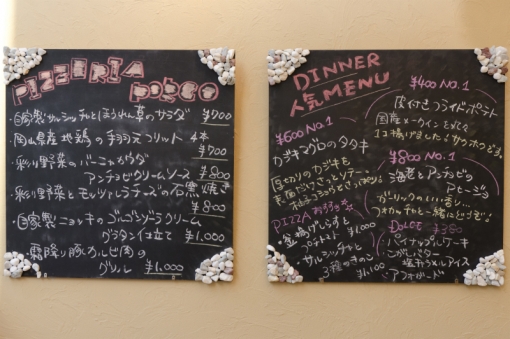 PIZZERIA PORCO
・自家製サルシッチャとほうれん草のサラダ ¥700
・岡山県産地鶏の手羽元フリット 4本
¥700
・彩り野菜のバーニャカウダ
アンチョビクリームソース ¥800
・彩り野菜とモッツァレラチーズの石窯焼き
¥800
・自家製ニョッキのゴルゴンゾーラクリーム
グラタン仕立て ¥1,000
・霜降り豚カルビ肉の
グリル ¥1,000
DINNER
人気MENU
¥600 NO.1
カジキマグロのタタキ
厚切りのカジキを
表面だけさっとソテー
PIZZA おすすめ
・釜揚げしらすと
プチトマト ¥1,000
・サルシッチャと
3種のきのこ
¥1,100
¥400 NO.1
皮付きフライドポテト
国産メークインを丸々
1コ揚げました！サクホクです。
¥800 NO.1
海老とアンチョビの
アヒージョ
ガーリックのいい香り…
フォカッチャと一緒にどうぞ！
DOLCE ¥380
パイナップルケーキ
こがしバター
塩キャラメルアイス
アフォガード